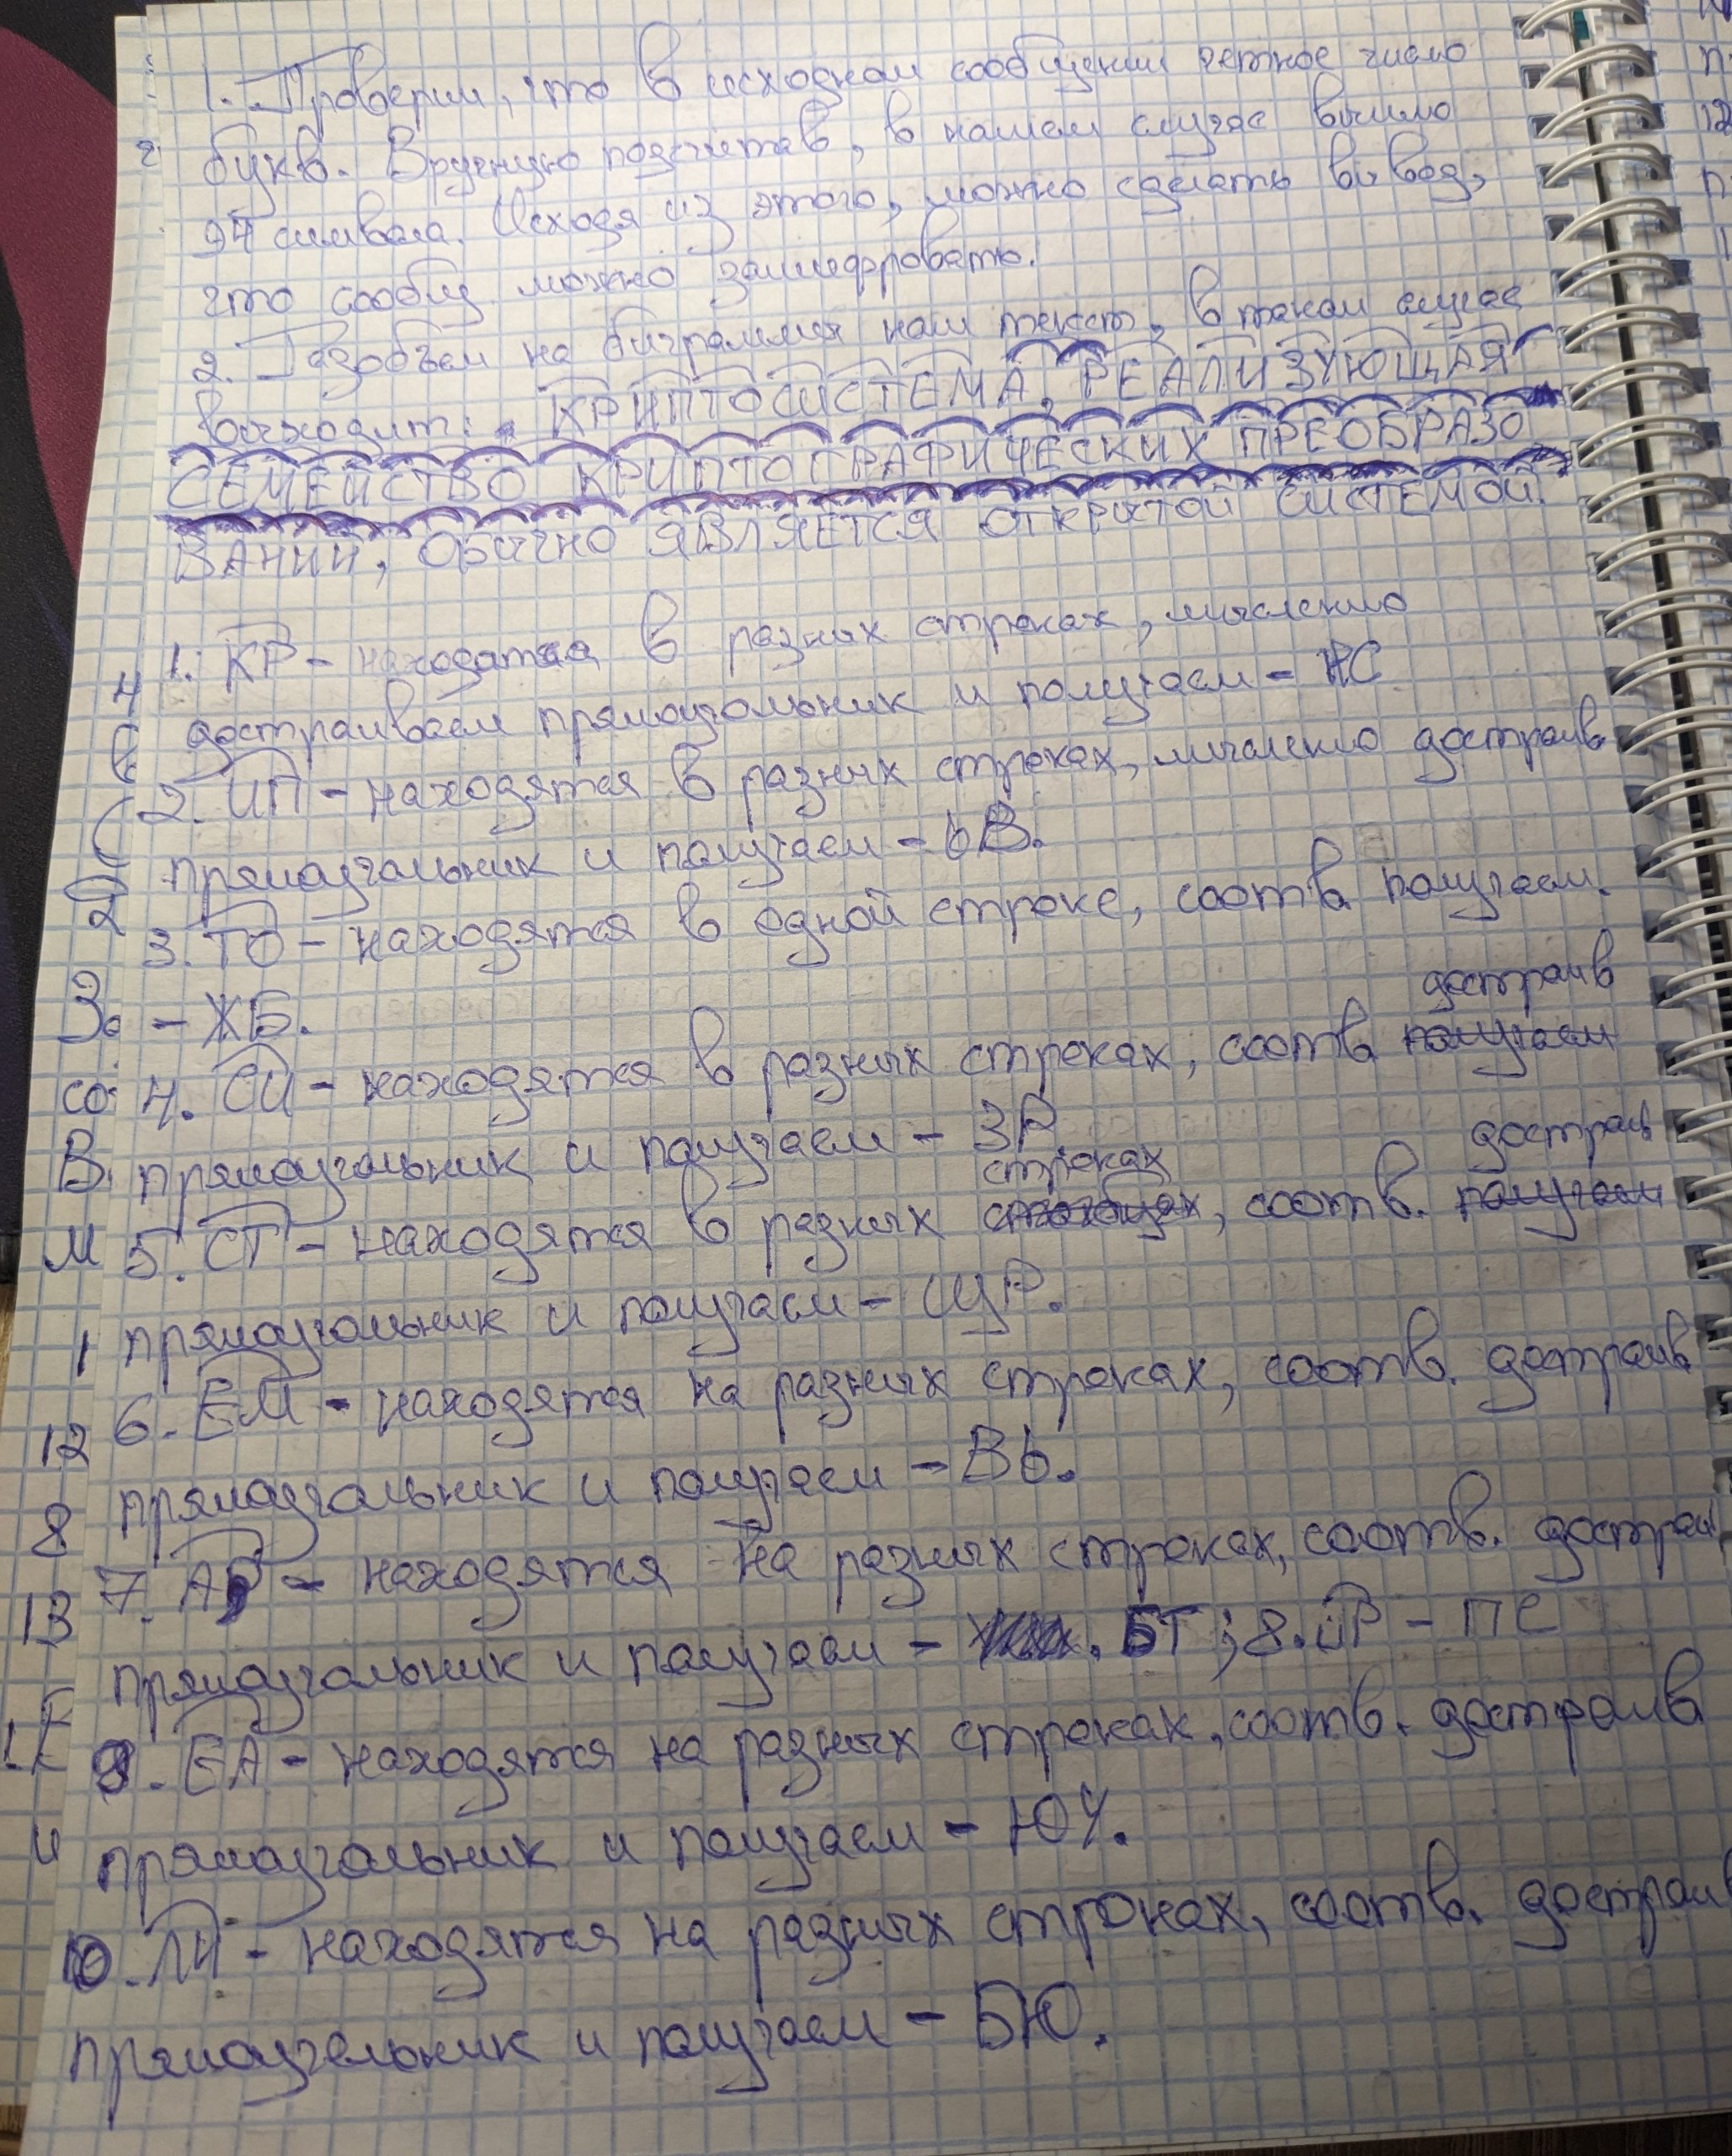 1. Проверим, что в исходном сообщении четное число
букв. Вручную подсчитав, в нашем случае вышло
94 символа. Исходя из этого, можно сделать вывод,
что сообщ. можно зашифровать.
2. Разобъем на биграммы наш текст, в таком случае
выходит: КРИПТОСИСТЕМА, РЕАЛИЗУЮЩАЯ
СЕМЕЙСТВО КРИПТОГРАФИЧЕСКИХ ПРЕОБРАЗО
ВАНИЙ, ОБЫЧНО ЯВЛЯЕТСЯ ОТКРЫТОЙ СИСТЕМОЙ.
1. КР - находятся в разных строках, мысленно
достраиваем прямоугольник и получаем - НС
2. ИП - находятся в разных строках, мысленно достраив
прямоугольник и получаем - ЬВ.
3. ТО - находятся в одной строке, соотв. получаем.
- ЖБ.
достраив
4. СИ - находятся в разных строках, соотв. получаем
прямоугольник и получаем - ЗР
строках достраив
5. СТ - находятся в разных, соотв. получаем
прямоугольник и получаем - ЩР.
6. ЕМ - находятся на разных строках, соотв. достраив
прямоугольник и получаем - ВЬ.
7. А, - находятся на разных строках, соотв. достраив
прямоугольник и получаем - БТ; 8. ,Р - ПС
9. ЕА - находятся на разных строках, соотв. достраив
прямоугольник и получаем - ЮЧ.
10. ЛИ - находятся на разных строках, соотв. достраив
прямоугольник и получаем - БЮ.